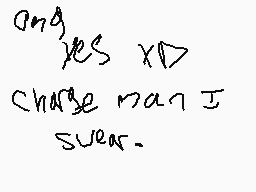 omg
yes XD
charge man I
swear.